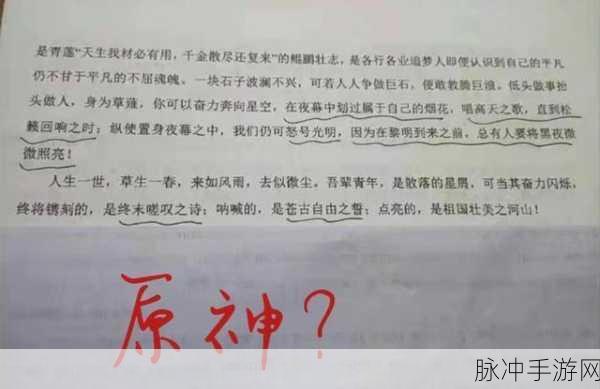 是青莲“天生我材必有用，千金散尽还复来”的鲲鹏壮志，是各行各业追梦人即便认识到自己的平凡
仍不甘于平凡的不屈魂魄。一块石子波澜不兴，可若人人争做巨石，便敢教腾巨浪。低头做事抬
头做人，身为草莲，你可以奋力奔向星空，在夜幕中划过属于自己的烟花，唱离天之歌，直到松
籁回响之时；纵使置身夜幕之中，我们仍可怒号光明，因为在黎明到来之前，总有人要将黑夜微
微照亮！
人生一世，草生一春，来如风雨，去似微尘。吾辈青年，是散落的星屑，可当其奋力闪烁，
终将镌刻的，是终末嗟叹之诗；呐喊的，是苍古自由之誓；点亮的，是祖国壮美之河山！
原神？
脉冲手游网